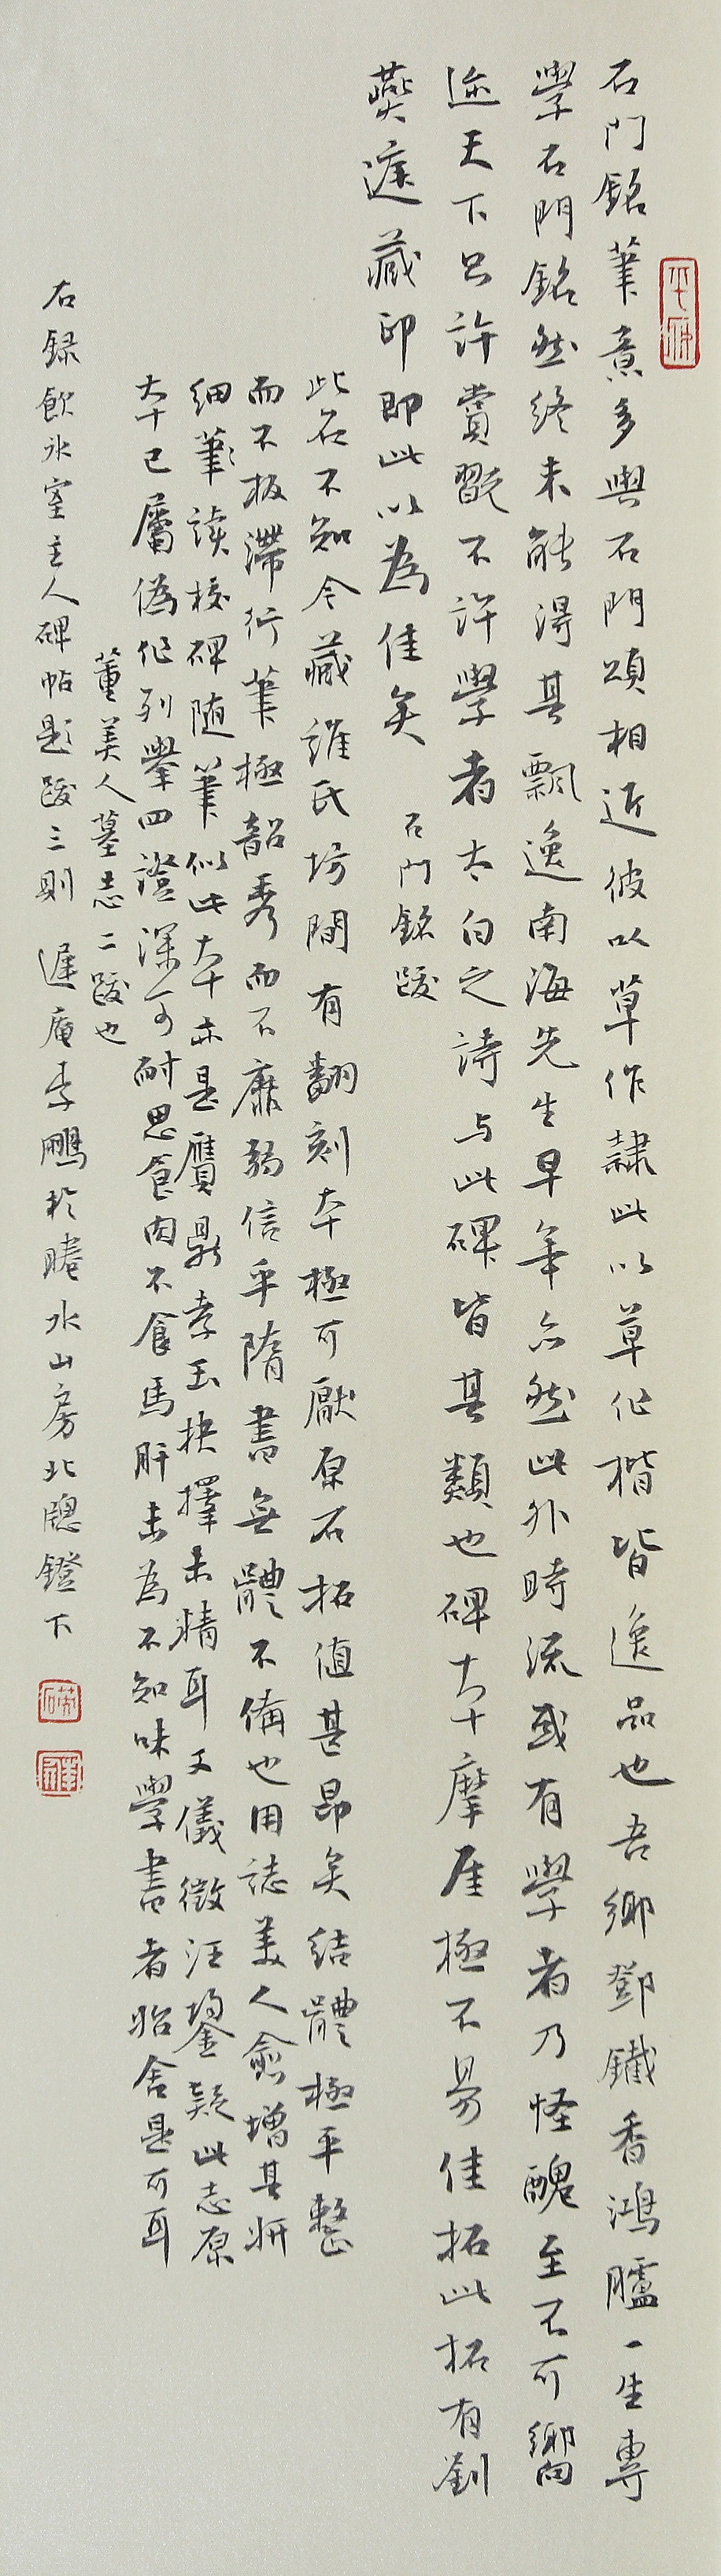 石門銘筆意多與石門頌相近彼以草作隸此以草作楷皆逸品也吾鄉鄧鐵香鴻臚一生專
學石門銘然終未能得其飄逸南海先生早年亦然此外時流或有學者乃怪醜至不可嚮
迩天下只許賞翫不許學者太白之詩与此碑皆其類也碑大十摩厓極不易佳拓此拓有劉
燕庭藏印即此以為佳矣
石門銘跋
此石不知今藏誰氏坊間有翻刻本極可厭原石拓值甚昂矣結體極平整
而不板滯行筆極韶秀而不靡弱信乎隋書無體不備也用誌美人奩增其妍
細勘读校碑随筆似此本亦是贋鼎李玉抉擇未精耳又儀徵汪鋆疑此志原
本已屬偽作列舉四證深可耐思食肉不食馬肝未為不知味學書者始舍是可耳
董美人墓志二跋也
右録飲冰室主人碑帖題跋三則 遲庵李鵬於曉水山房北牕鐙下